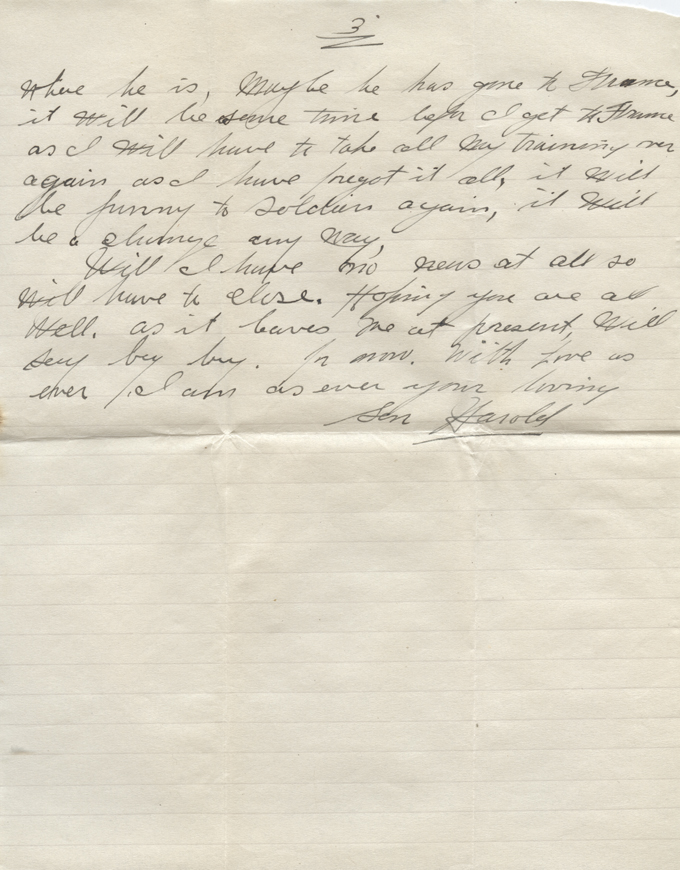 3
Where he is, Maybe he has gone to France,
it will be some time befor I get to France
as I will have to take all my training over
again as I have forgot it all, it will
be funny to soldier again, it will
be a change any way,
Will I have no news at all so
will have to close. Hoping you are all
Well. as it leaves me at present, Will
say by by. for now. With Love as
ever I am as ever your loving
Son Harold